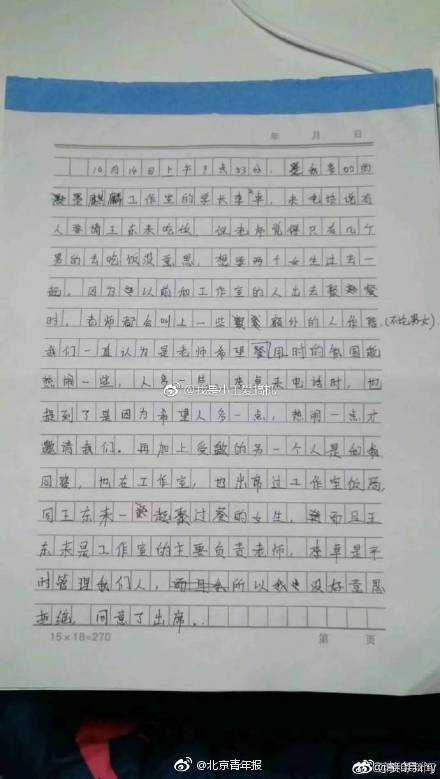 年 月 日
10月14日上午9点53分，是我参加的
墨麒麟工作室的学长李卓，来电话说有
人要请王东来吃饭，但老师觉得只有几个
男的去吃饭没意思，想要两个女生过去一
起，因为以前和工作室的人出去聚餐
时，老师都会叫上一些额外的人作陪(不论男女)
我们一直认为是老师希望聚餐时的氛围能
热闹一些，人多一些，李卓来电话时，也
提到了是因为希望人多一点，热闹一点才
邀请我们。再加上受邀的另一个人是的我
同寝，也在工作室，也出席过工作室饭局，
同王东来一起聚过餐的女生，而且王
东来是工作室的主要负责老师，李卓是平
时管理我们人，所以我没好意思
拒绝，同意了出席。
15×18=270
第 页
@我是小王发描机
@北京青年报